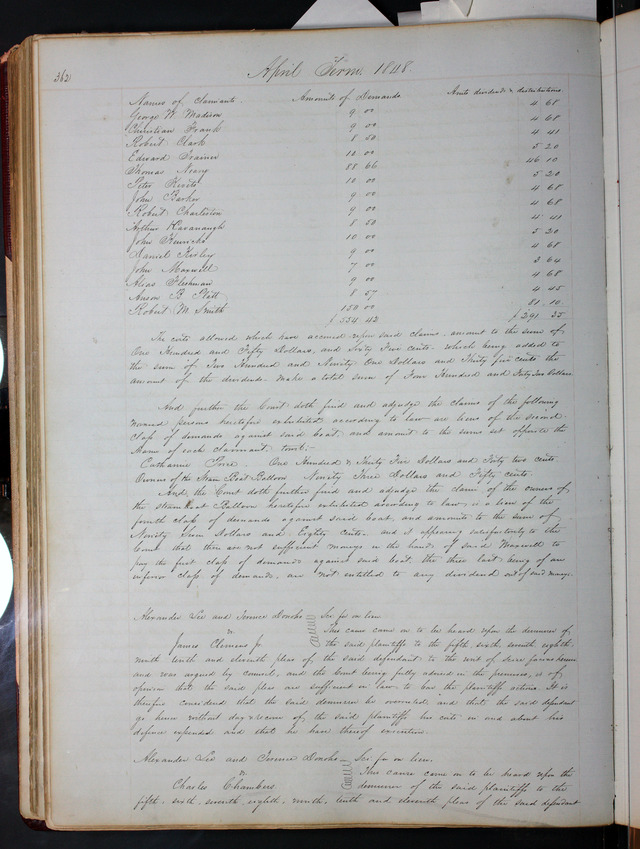 362
April Term 1848.
Names of Claimants. Amounts of Demands Amts dividends & distributions.
George W. Madison 9 00 4 68
Christian Frank 9 00 4 68
Robert Clark 8 50 4 41
Edward Trainer 10 00 5 20
Thomas Avery 88 66 46 10
Peter 10 00 5 20
John Barker 9 00 4 68
Robert Charleston 9 00 4 68
Arthur Kavanaugh 8 50 4 41
John Kenrichs 10 00 5 20
Daniel Kerley 9 00 4 68
John Maxwell 7 00 3 64
Alias Fleshman 9 00 4 68
Anson B. Platt 8 57 4 45
Robert M. Smith 150 00 81 10
$ 554 42 $ 291 35
The costs allowed which have accrued upon said claims amount to the sum of
One Hundred and Fifty Dollars, and Sixty Five cents. which being added to
the sum of Two Hundred and Ninety One Dollars and Thirty five cents the
amount of the dividends. make a total sum of Four Hundred and Forty Two Dollars.
And further the Court doth find and adjudge the claims of the following
named persons heretofore exhibited according to law are liens of the second
Class of demands against said boat, and amount to the sums set opposite the
name of each claimant, towit:-
Catharine One Hundred & Thirty Five Dollars and Sixty two cents
Owners of the Steam Boat Balloon Ninety Three Dollars and Fifty cents.
And, the Court doth further find and adjudge the claim of the owners of
the steamboat Balloon heretofore exhibited according to law, is a lien of the
fourth class of demands against said boat, and amounts to the sum of
Ninety Dollars and Eighty cents. and it appearing satisfactorily to the
Court that there are not sufficient moneys in the hands of said Maxwell to
pay the first class of demands against said boat, the three last being of an
inferior class of demands, are not entitled to any dividend out of said moneys.
Alexander Lee and Terence Donoho Sci fa on lien
vs. This cause came on to be heard upon the demurrer of
James Clemens Jr. the said plaintiffs to the fifth, sixth, seventh, eighth,
ninth tenth and eleventh pleas of the said defendant to the writ of scire facias herein
and was argued by Counsel, and the Court being fully advised in the premises, is of
opinion that the said pleas are sufficient in law to bar the plaintiffs action. It is
therefore considered that the said demurrer be overruled, and that the said defendant
go hence without day & recover of the said plaintiffs his costs in and about his
defence expended and that he have thereof execution.
Alexander Lee and Terence Donoho Sci fa on lien.
vs. This cause came on to be heard upon the
Charles Chambers. demurrer of the said plaintiffs to the
fifth, sixth, seventh, eighth, ninth, tenth and eleventh pleas of the said defendant